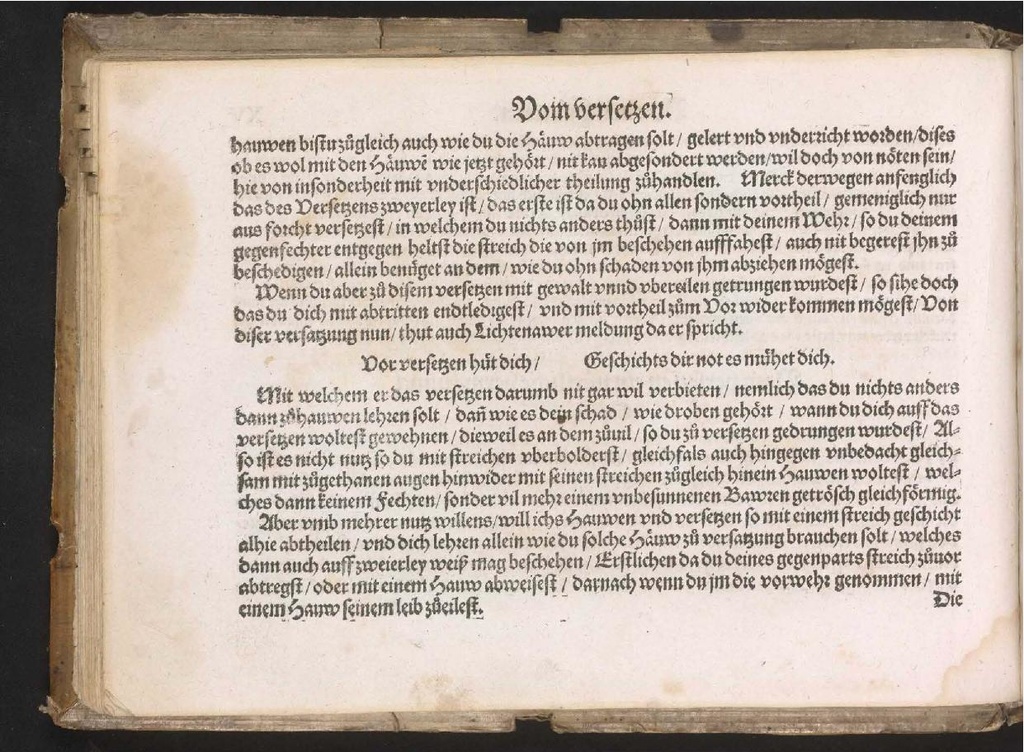 Vom versetzen.
hauwen bistu zůgleich auch wie du die Häuw abtragen solt / gelert vnd vnderricht worden / dises
ob es wol mit den Häuwē wie jetzt gehört / nit kan abgesondert werden / wil doch von nöten sein /
hie von in sonderheit mit vnderschiedlicher theilung zůhandlen. Merck derwegen anfenglich
das des Versetzens zweyerley ist / das erste ist da du ohn allen sondern vortheil / gemeniglich nur
aus forcht versetzest / in welchem du nichts anders thůst / dann mit deinem Wehr / so du deinem
gegenfechter entgegen heltst die streich die von jm beschehen aufffahest / auch nit begerest jhn zů
beschedigen / allein benüget an dem / wie du ohn schaden von jhm abziehen mögest.
Wenn du aber zů disem versetzen mit gewalt vnnd vbereilen getrungen wurdest / so sihe doch
das du dich mit abtritten endtledigest / vnd mit vortheil zům Vor wider kommen mögest / Von
diser versatzung nun / thut auch Lichtenawer meldung da er spricht.
Vor versetzen hüt dich / Geschichts dir not es mühet dich.
Mit welchem er das versetzen darumb nit gar wil verbieten / nemlich das du nichts anders
dann zůhauwen lehren solt / dañ wie es dein schad / wie droben gehört / wann du dich auff das
versetzen woltest gewehnen / dieweil es an dem zůvil / so du zů versetzen gedrungen wurdest / Al⸗
so ist es nicht nutz so du mit streichen vberbolderst / gleichfals auch hingegen vnbedacht gleich⸗
sam mit zůgethanen augen hinwider mit seinen streichen zůgleich hinein Hauwen woltest / wel⸗
ches dann keinem Fechten / sonder vil mehr einem vnbesunnenen Bawren getrösch gleichförmig.
Aber vmb mehrer nutz willens / will ichs Hauwen vnd versetzen so mit einem streich geschicht
alhie abtheilen / vnd dich lehren allein wie du solche Häuw zů versatzung brauchen solt / welches
dann auch auff zweierley weiß mag beschehen / Erstlichen da du deines gegenparts streich zůuor
abtregst / oder mit einem Hauw abweisest / darnach wenn du jm die vorwehr genommen / mit
einem Hauw seinem leib zůeilest.
Die